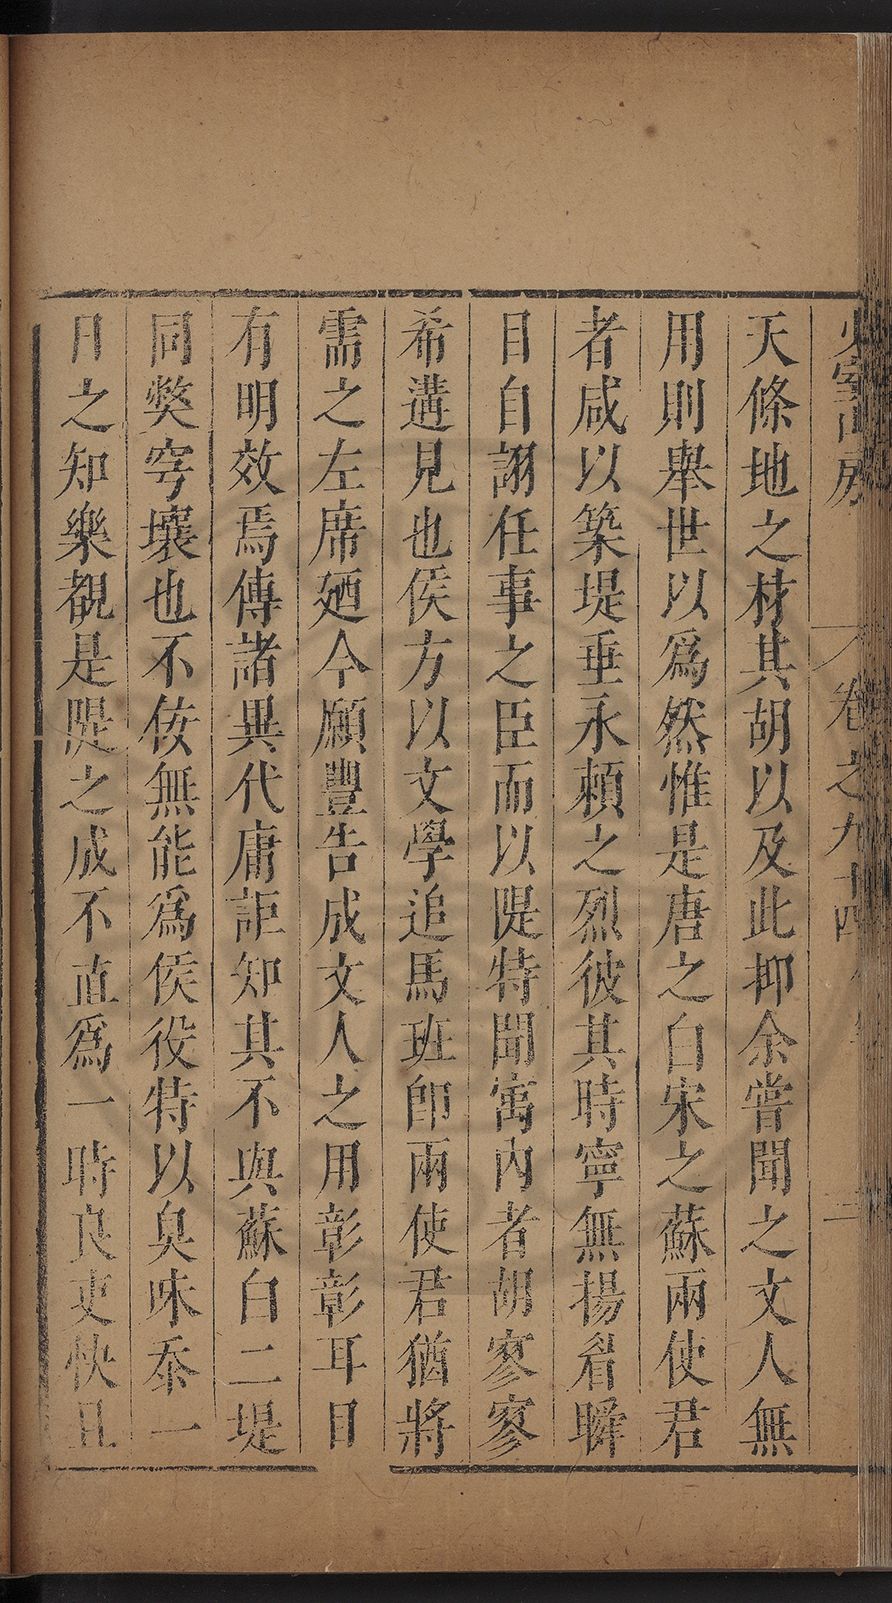 少室山房
卷之九十四
二
天條地之材其胡以及此抑余嘗聞之文人無
用則舉世以爲然惟是唐之白宋之蘇兩使君
者咸以築堤垂永賴之烈彼其時寧無揚眉瞬
目自詡任事之臣而以隄特聞寓內者胡寥寥
希遘見也侯方以文學追馬班卽兩使君猶將
需之左席廼今願豐告成文人之用彰彰耳目
有明效焉傳諸異代庸詎知其不與蘇白二堤
同獘穹壤也不佞無能爲侯役特以臭味忝一
日之知樂覩是隄之成不直爲一時良吏快且